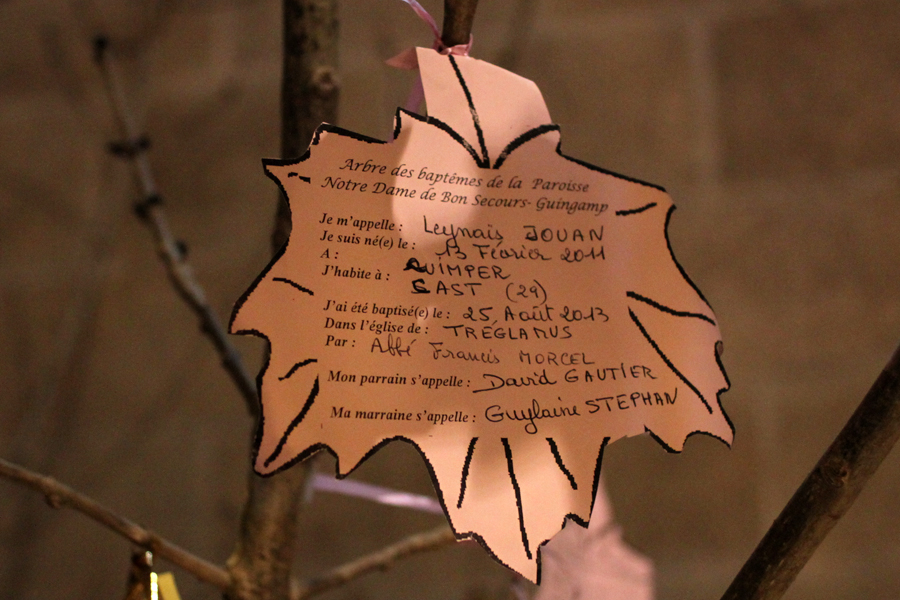 Arbre des baptêmes de la Paroisse
Notre Dame de Bon Secours- Guingamp
Je m'appelle : Leynais JOUAN
Je suis né(e) le : 13 Février 2011
A : QUIMPER
J'habite à : CAST (29)
J'ai été baptisé(e) le : 25 Août 2013
Dans l'église de : TREGLAMUS
Par : Abbé Francis MORCEL
Mon parrain s'appelle : David GAUTIER
Ma marraine s'appelle : Guylaine STEPHAN